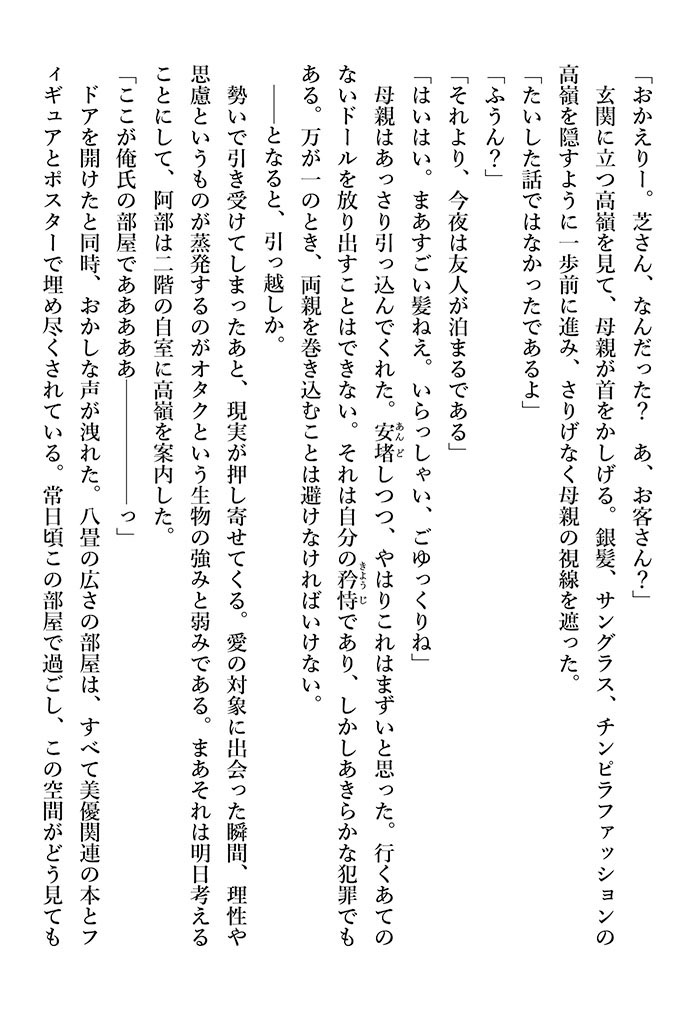 「おかえりー。芝さん、なんだった？　あ、お客さん？」
　玄関に立つ高嶺を見て、母親が首をかしげる。銀髪、サングラス、チンピラファッションの
高嶺を隠すように一歩前に進み、さりげなく母親の視線を遮った。
「たいした話ではなかったであるよ」
「ふうん？」
「それより、今夜は友人が泊まるである」
「はいはい。まあすごい髪ねえ。いらっしゃい、ごゆっくりね」
　母親はあっさり引っ込んでくれた。安堵しつつ、やはりこれはまずいと思った。行くあての
ないドールを放り出すことはできない。それは自分の矜恃であり、しかしあきらかな犯罪でも
ある。万が一のとき、両親を巻き込むことは避けなければいけない。
　――となると、引っ越しか。
　勢いで引き受けてしまったあと、現実が押し寄せてくる。愛の対象に出会った瞬間、理性や
思慮というものが蒸発するのがオタクという生物の強みと弱みである。まあそれは明日考える
ことにして、阿部は二階の自室に高嶺を案内した。
「ここが俺氏の部屋でああああ――――っ」
　ドアを開けたと同時、おかしな声が洩れた。八畳の広さの部屋は、すべて美優関連の本とフ
ィギュアとポスターで埋め尽くされている。常日頃この部屋で過ごし、この空間がどう見ても